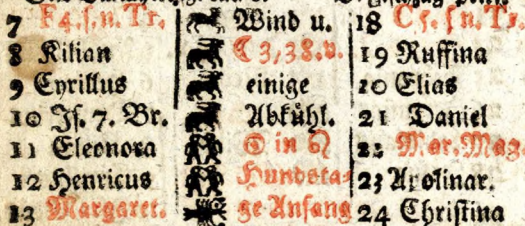 7 F4.s.n.Tr. Wind u. 18 C5.s.n.Tr.
8 Kilian ☾ 3,38.v. 19 Ruffina
9 Cyrillus einige 20 Elias
10 Js. 7. Br. Abkühl. 21 Daniel
11 Eleonora ☉ in ♌ 22 Mar. Mag.
12 Henricus Hundsta- 23 Apolinar.
13 Margaret. ge Anfang 24 Christina